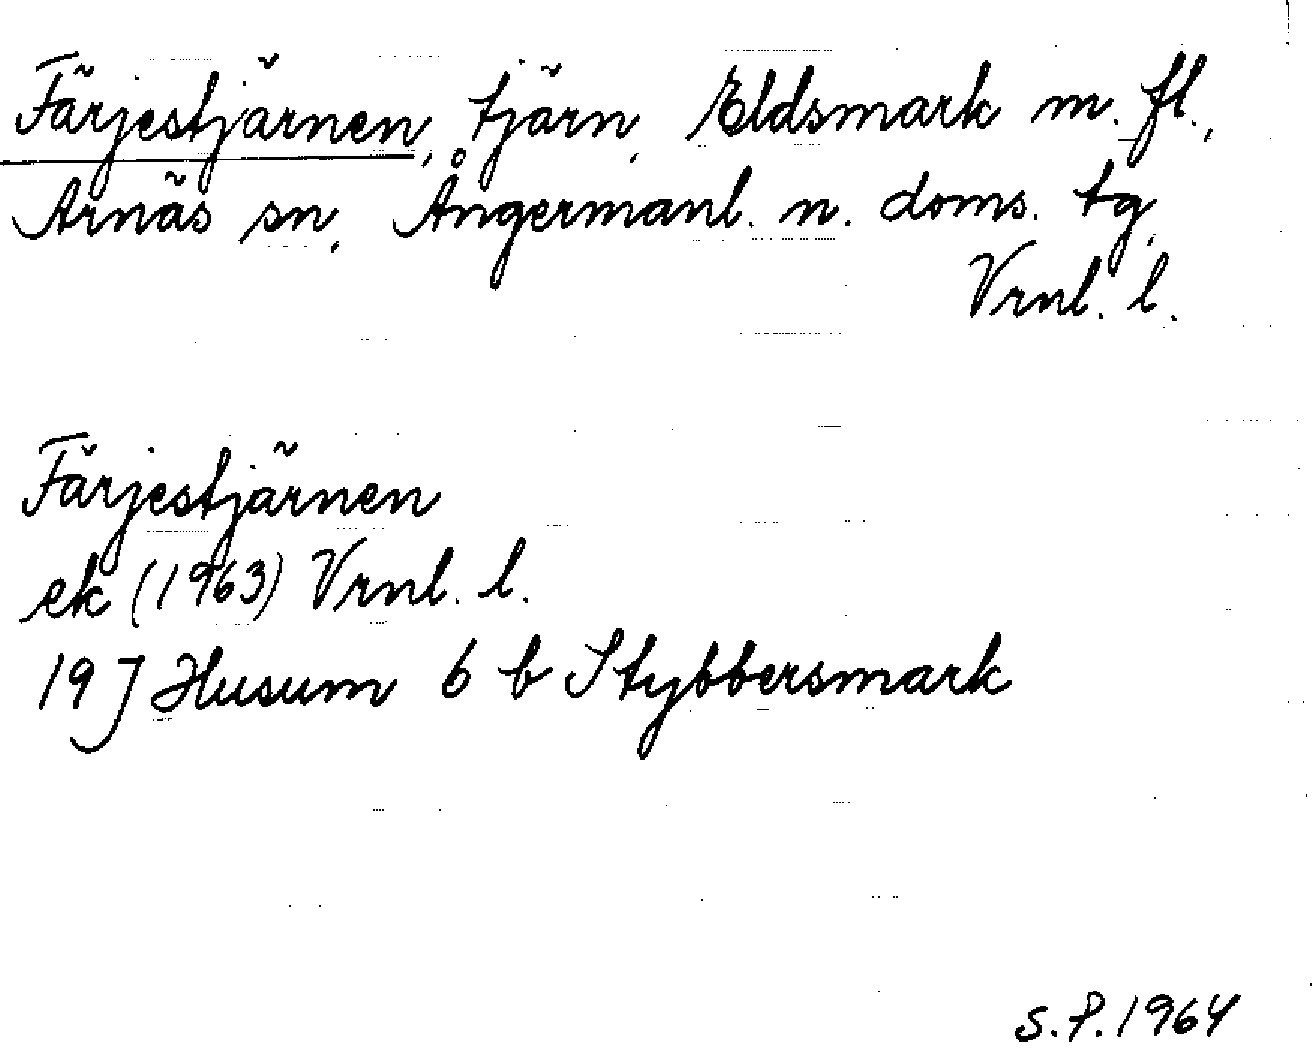 Färjestjärnen, tjärn, Eldsmark m. fl.,
Arnäs sn, Ångermanl. n. doms. tg,
Vrnl. l.
Färjestjärnen
ek (1963) Vrnl. l.
19 J Husum 6 b Stybbersmark
S.P. 1964